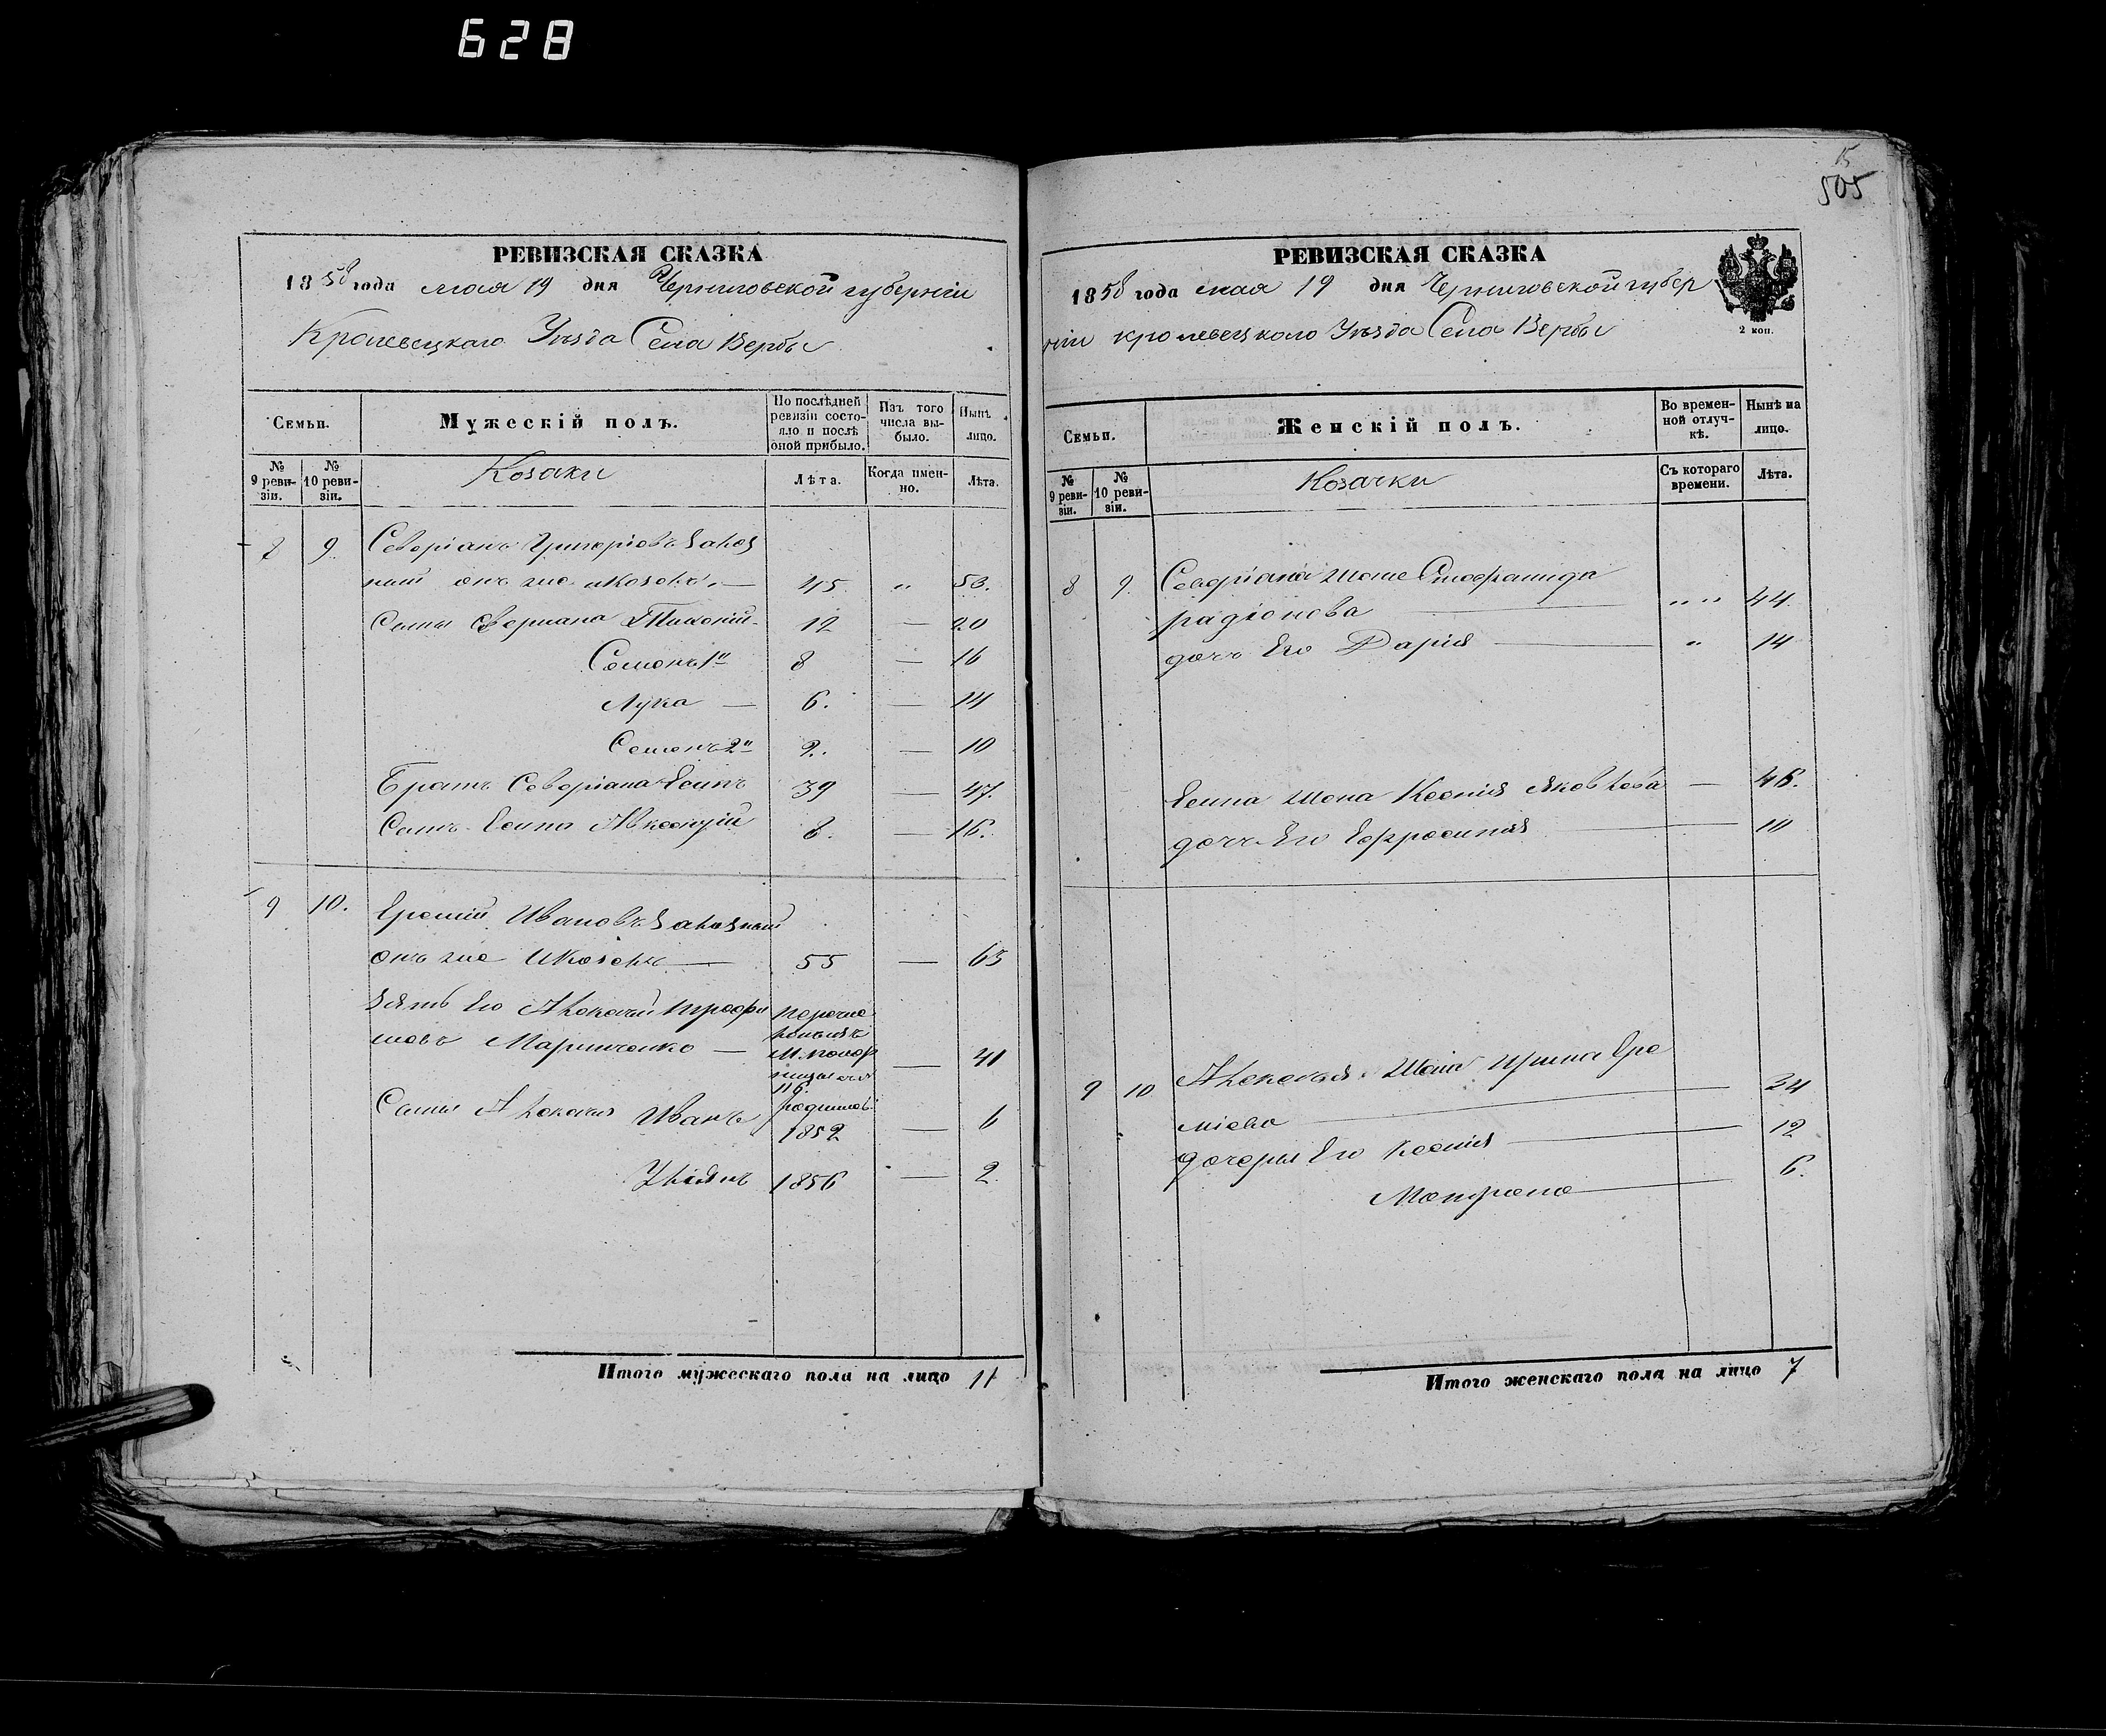 628
РЕВИЗСКАЯ СКАЗКА
1858 года мая 19 дня Черниговской губерніи
Кролевецкаго Уѣзда Села Вербы
Семьи.
Мужескій полъ.
По послѣдней ревизіи состояло и послѣ оной прибыло.
Изъ того числа выбыло.
Нынѣ лицо.
№ 9 ревизіи.
№ 10 ревизіи.
Козаки
Лѣта.
Когда именно.
Лѣта.
8 9. Северіанъ Григоріевъ
онъ же 45 " 53.
Сыны Северіана 12 — 20
Семенъ 1й 8 — 16
Лука — 6. — 14
Семенъ 2й 2. — 10
Братъ Северіана Есипъ 39 — 47.
Сынъ Есипа Авксентій 8. — 16.
9 10. Еремій Ивановъ
онъ же — 55 — 63
Зять Его Алексѣй Трофи
мовъ Маринченко — — 41
116.
Сыны Алексѣя Иванъ 1852 — 6
1856 — 2.
Итого мужескаго пола на лицо 11
15
505
РЕВИЗСКАЯ СКАЗКА
1858 года мая 19 дня Черниговской губер
ніи кролевецкаго Уѣзда Села Вербы
2 коп.
Семьи.
Женскій полъ.
Во временной отлучкѣ.
Нынѣ на лицо.
№ 9 ревизіи.
№ 10 ревизіи.
Козачки
Съ котораго времени.
Лѣта.
8 9. Северіана жена
радіонова — " " 44.
дочь Его Дарія — " 14
Есипа жена Ксенія Яковлева — 46.
дочь Его Ефросинія — 10
9 10 Алексѣя жена Ирина Ере
міева — 34
дочери Его Ксенія — 12
Матрона — 6.
Итого женскаго пола на лицо 7